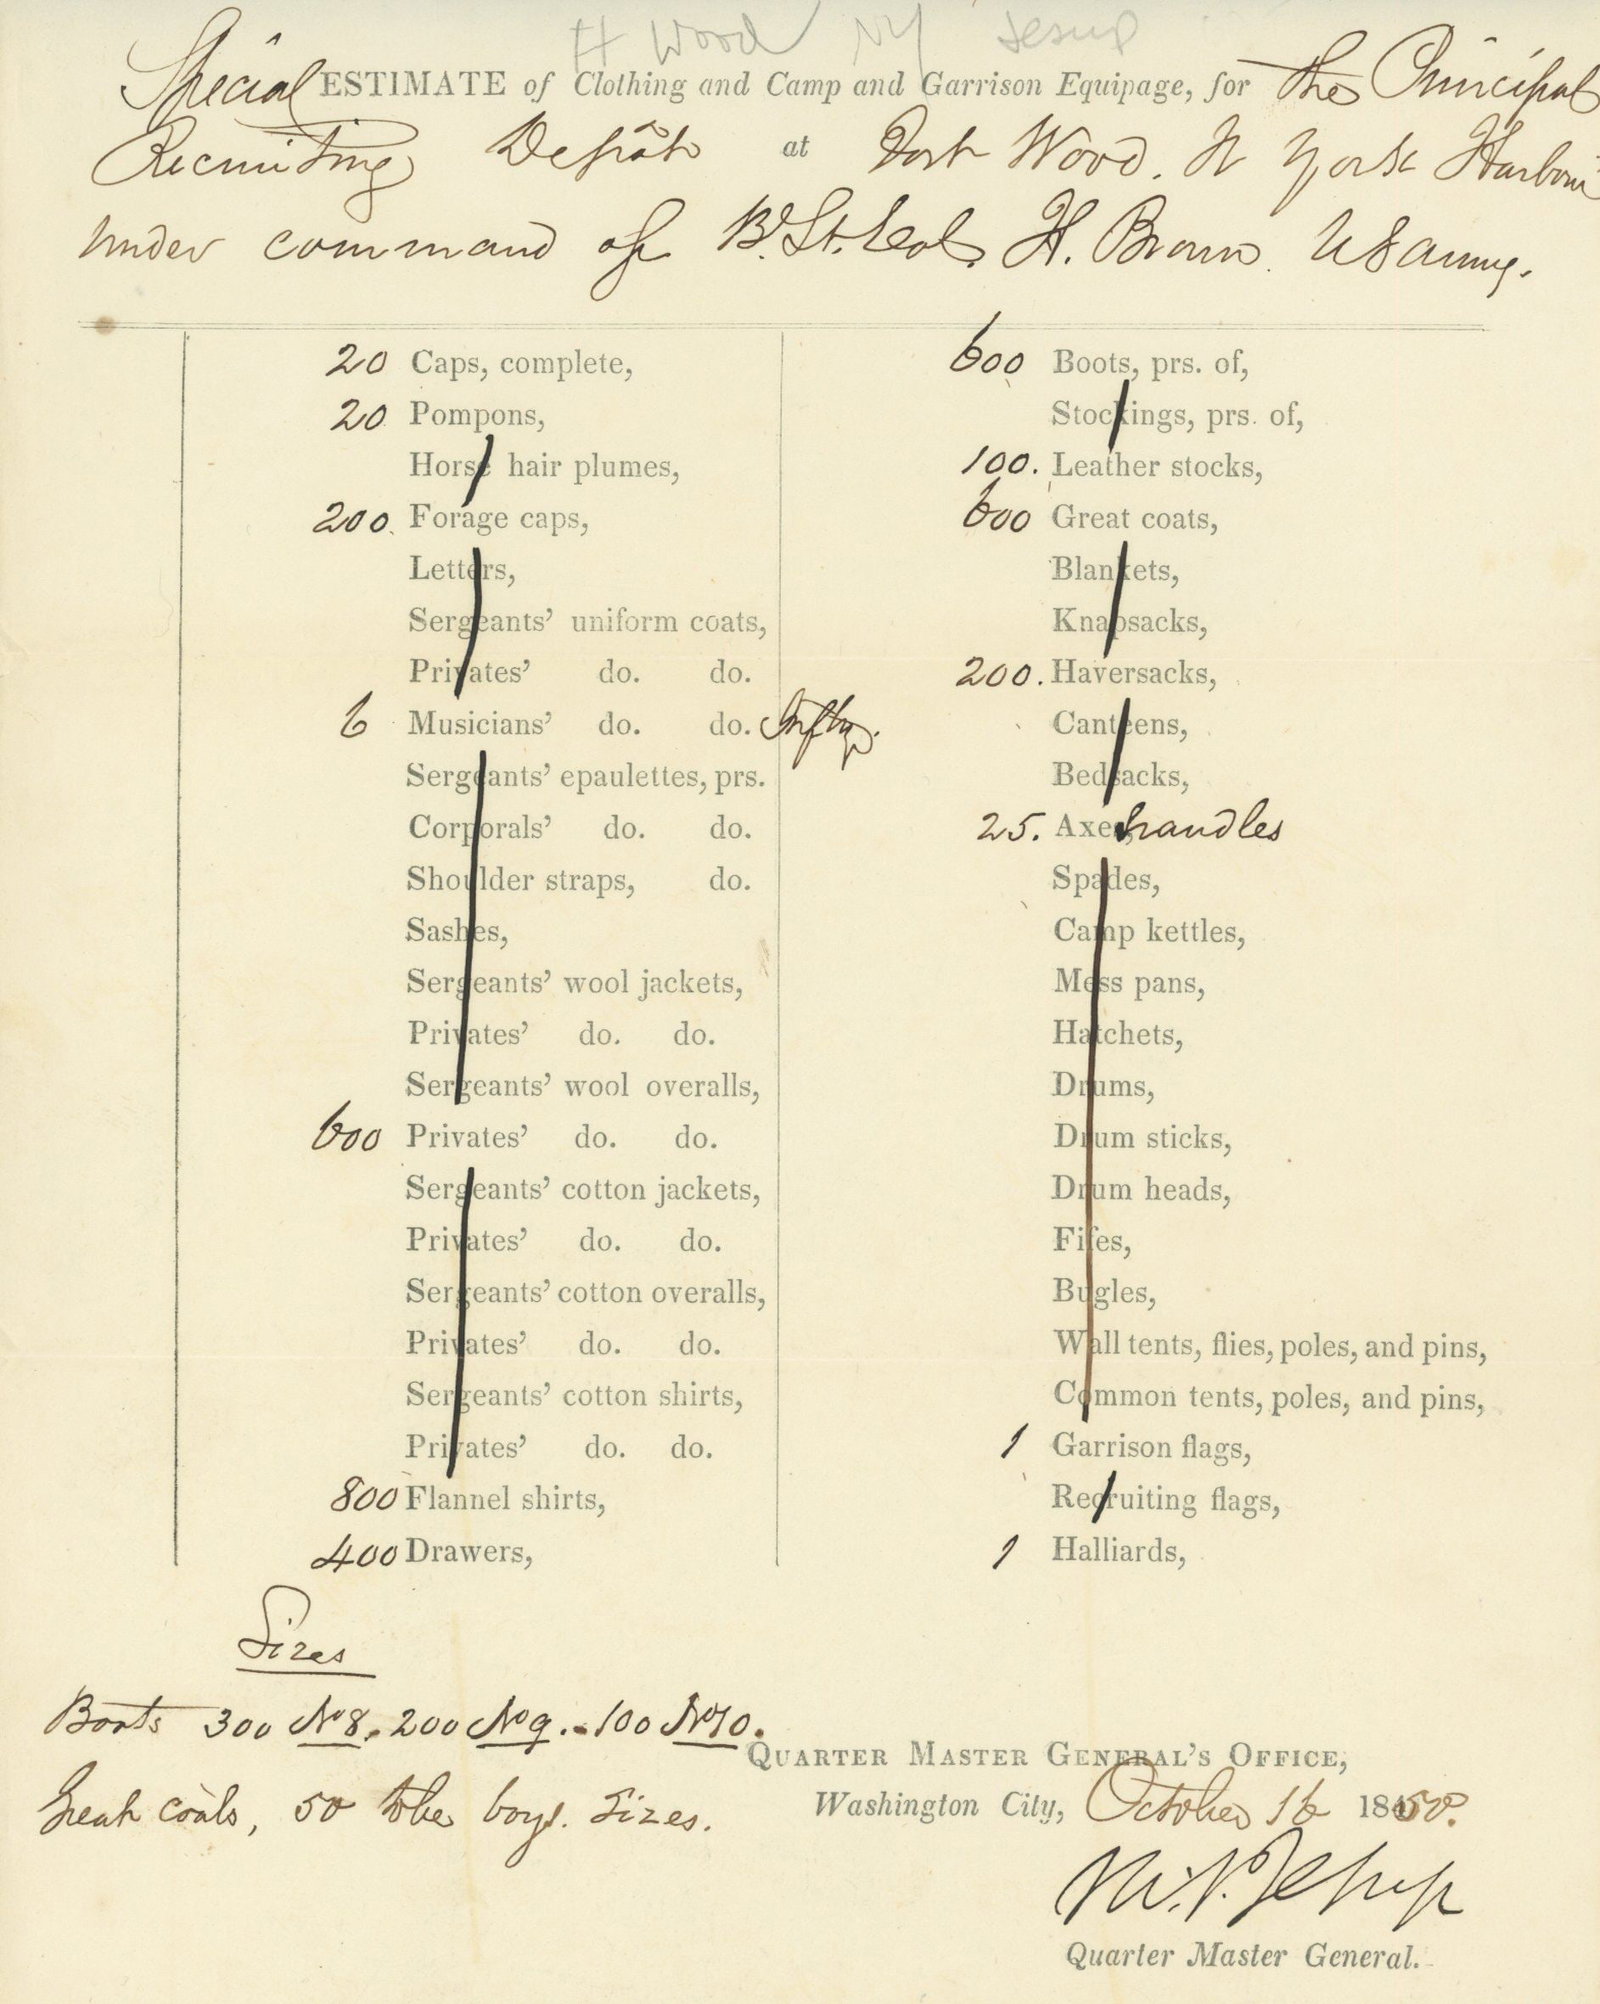 H Wood NY Jesup
Special ESTIMATE of Clothing and Camp and Garrison Equipage, for the Principal
Recruiting Depôt at Fort Wood. N York Harbour
under command of Bt. Lt. Col. H. Brown. U S Army.
20 Caps, complete,
20 Pompons,
Horse hair plumes,
200. Forage caps,
Letters,
Sergeants' uniform coats,
Privates' do. do.
6 Musicians' do. do. Infty.
Sergeants' epaulettes, prs.
Corporals' do. do.
Shoulder straps, do.
Sashes,
Sergeants' wool jackets,
Privates' do. do.
Sergeants' wool overalls,
600 Privates' do. do.
Sergeants' cotton jackets,
Privates' do. do.
Sergeants' cotton overalls,
Privates' do. do.
Sergeants' cotton shirts,
Privates' do. do.
800 Flannel shirts,
400 Drawers,
600 Boots, prs. of,
Stockings, prs. of,
100. Leather stocks,
600 Great coats,
Blankets,
Knapsacks,
200. Haversacks,
Canteens,
Bedsacks,
25. Axe handles
Spades,
Camp kettles,
Mess pans,
Hatchets,
Drums,
Drum sticks,
Drum heads,
Fifes,
Bugles,
Wall tents, flies, poles, and pins,
Common tents, poles, and pins,
1 Garrison flags,
Recruiting flags,
1 Halliards,
Sizes
Boots 300 No 8. 200 No 9. - 100 No 10.
Great coats, 50 to be boys. Sizes.
QUARTER MASTER GENERAL'S OFFICE,
Washington City, October 16 1850.
Th. S. Jesup
Quarter Master General.